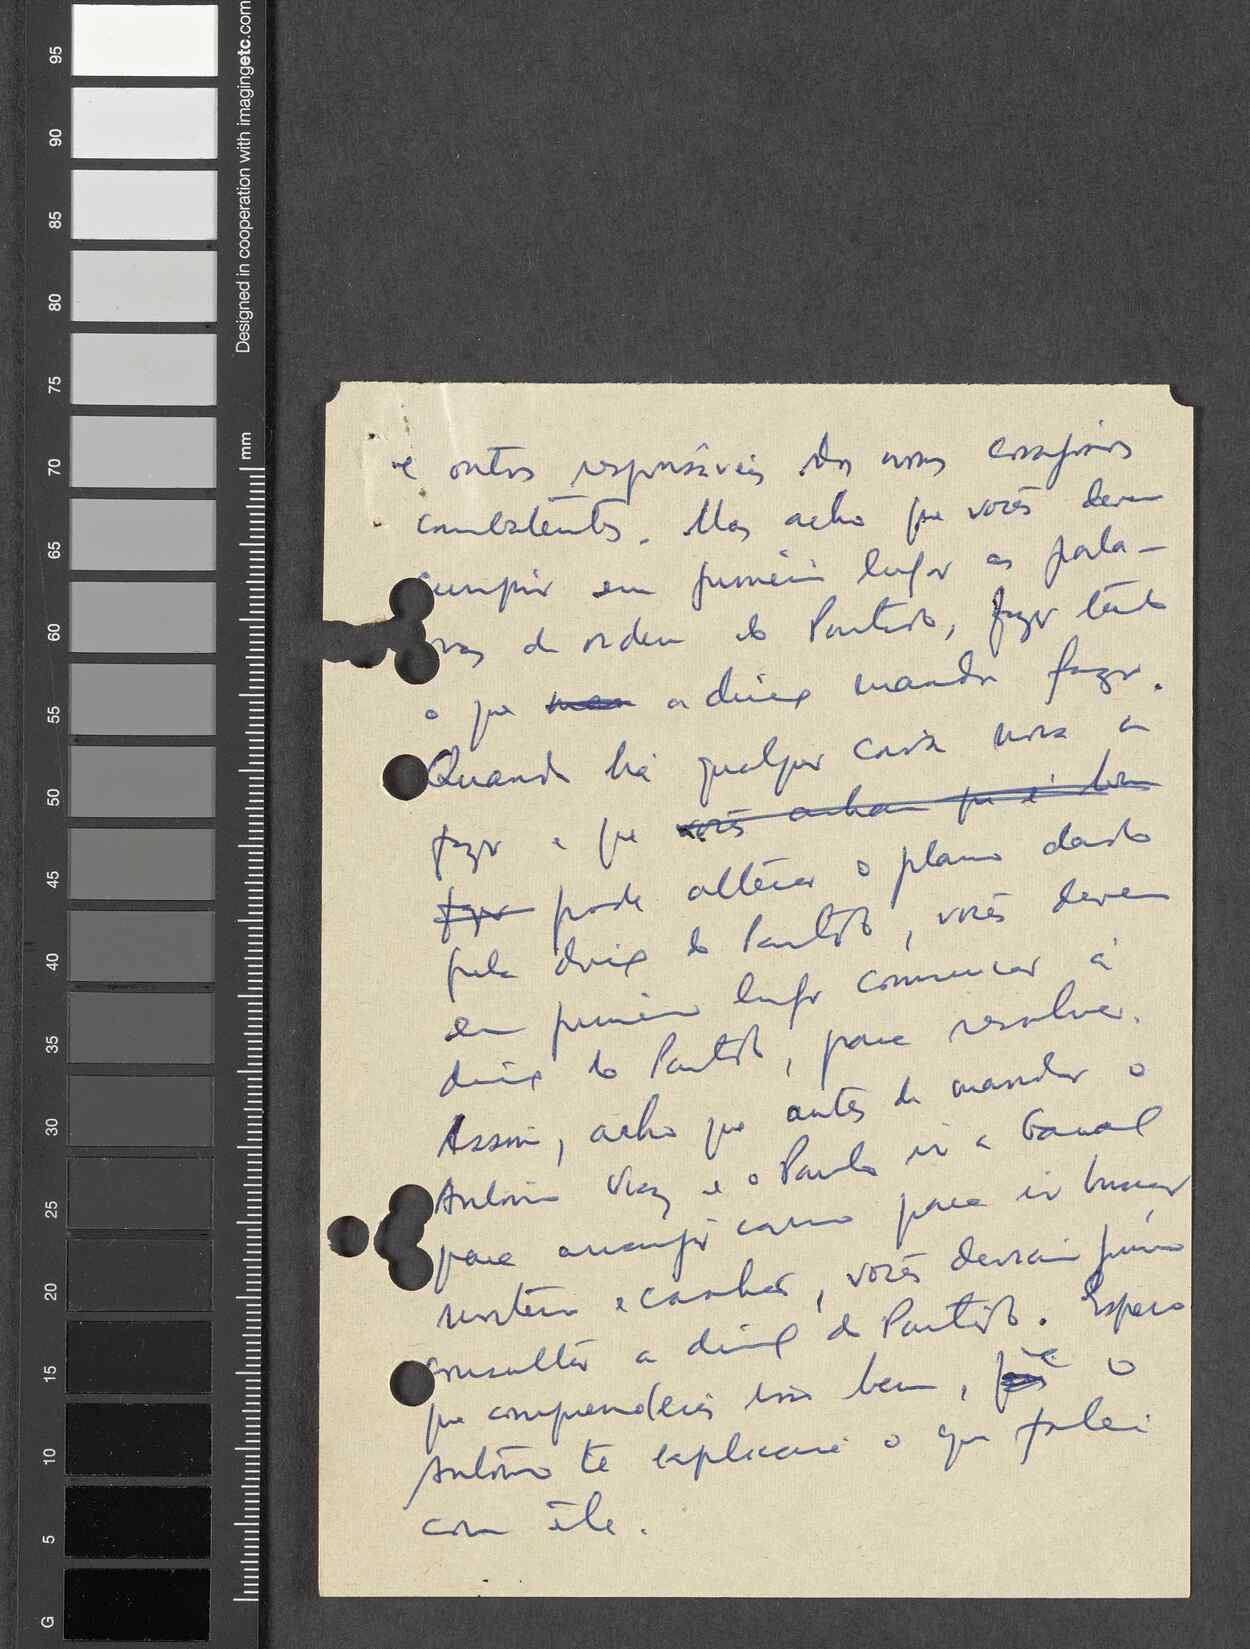 Designed in cooperation with imagingetc.com
mm
95
90
85
80
75
70
65
60
55
50
45
40
35
30
25
20
15
10
5
G
e outros responsáveis dos nossos corajosos
combatentes. Mas acho que vocês devem
cumprir em primeiro lugar as pala-
vras de ordem do Partido, fazer tudo
o que a direcç mandar fazer.
Quando há qualquer coisa nova a
fazer e que vocês acham que é bom
fazer pode alterar o plano dado
pela direcç do Partido, vocês devem
em primeiro lugar comunicar à
direcç do Partido, para resolver.
Assim, acho que antes de mandar o
António e o Paulo ir a
para arranjar carro para ir buscar
e, vocês deviam primeiro
consultar a direcç do Partido. Espero
que compreendereis isso bem, e o
António te explicará o que falei
com êle.